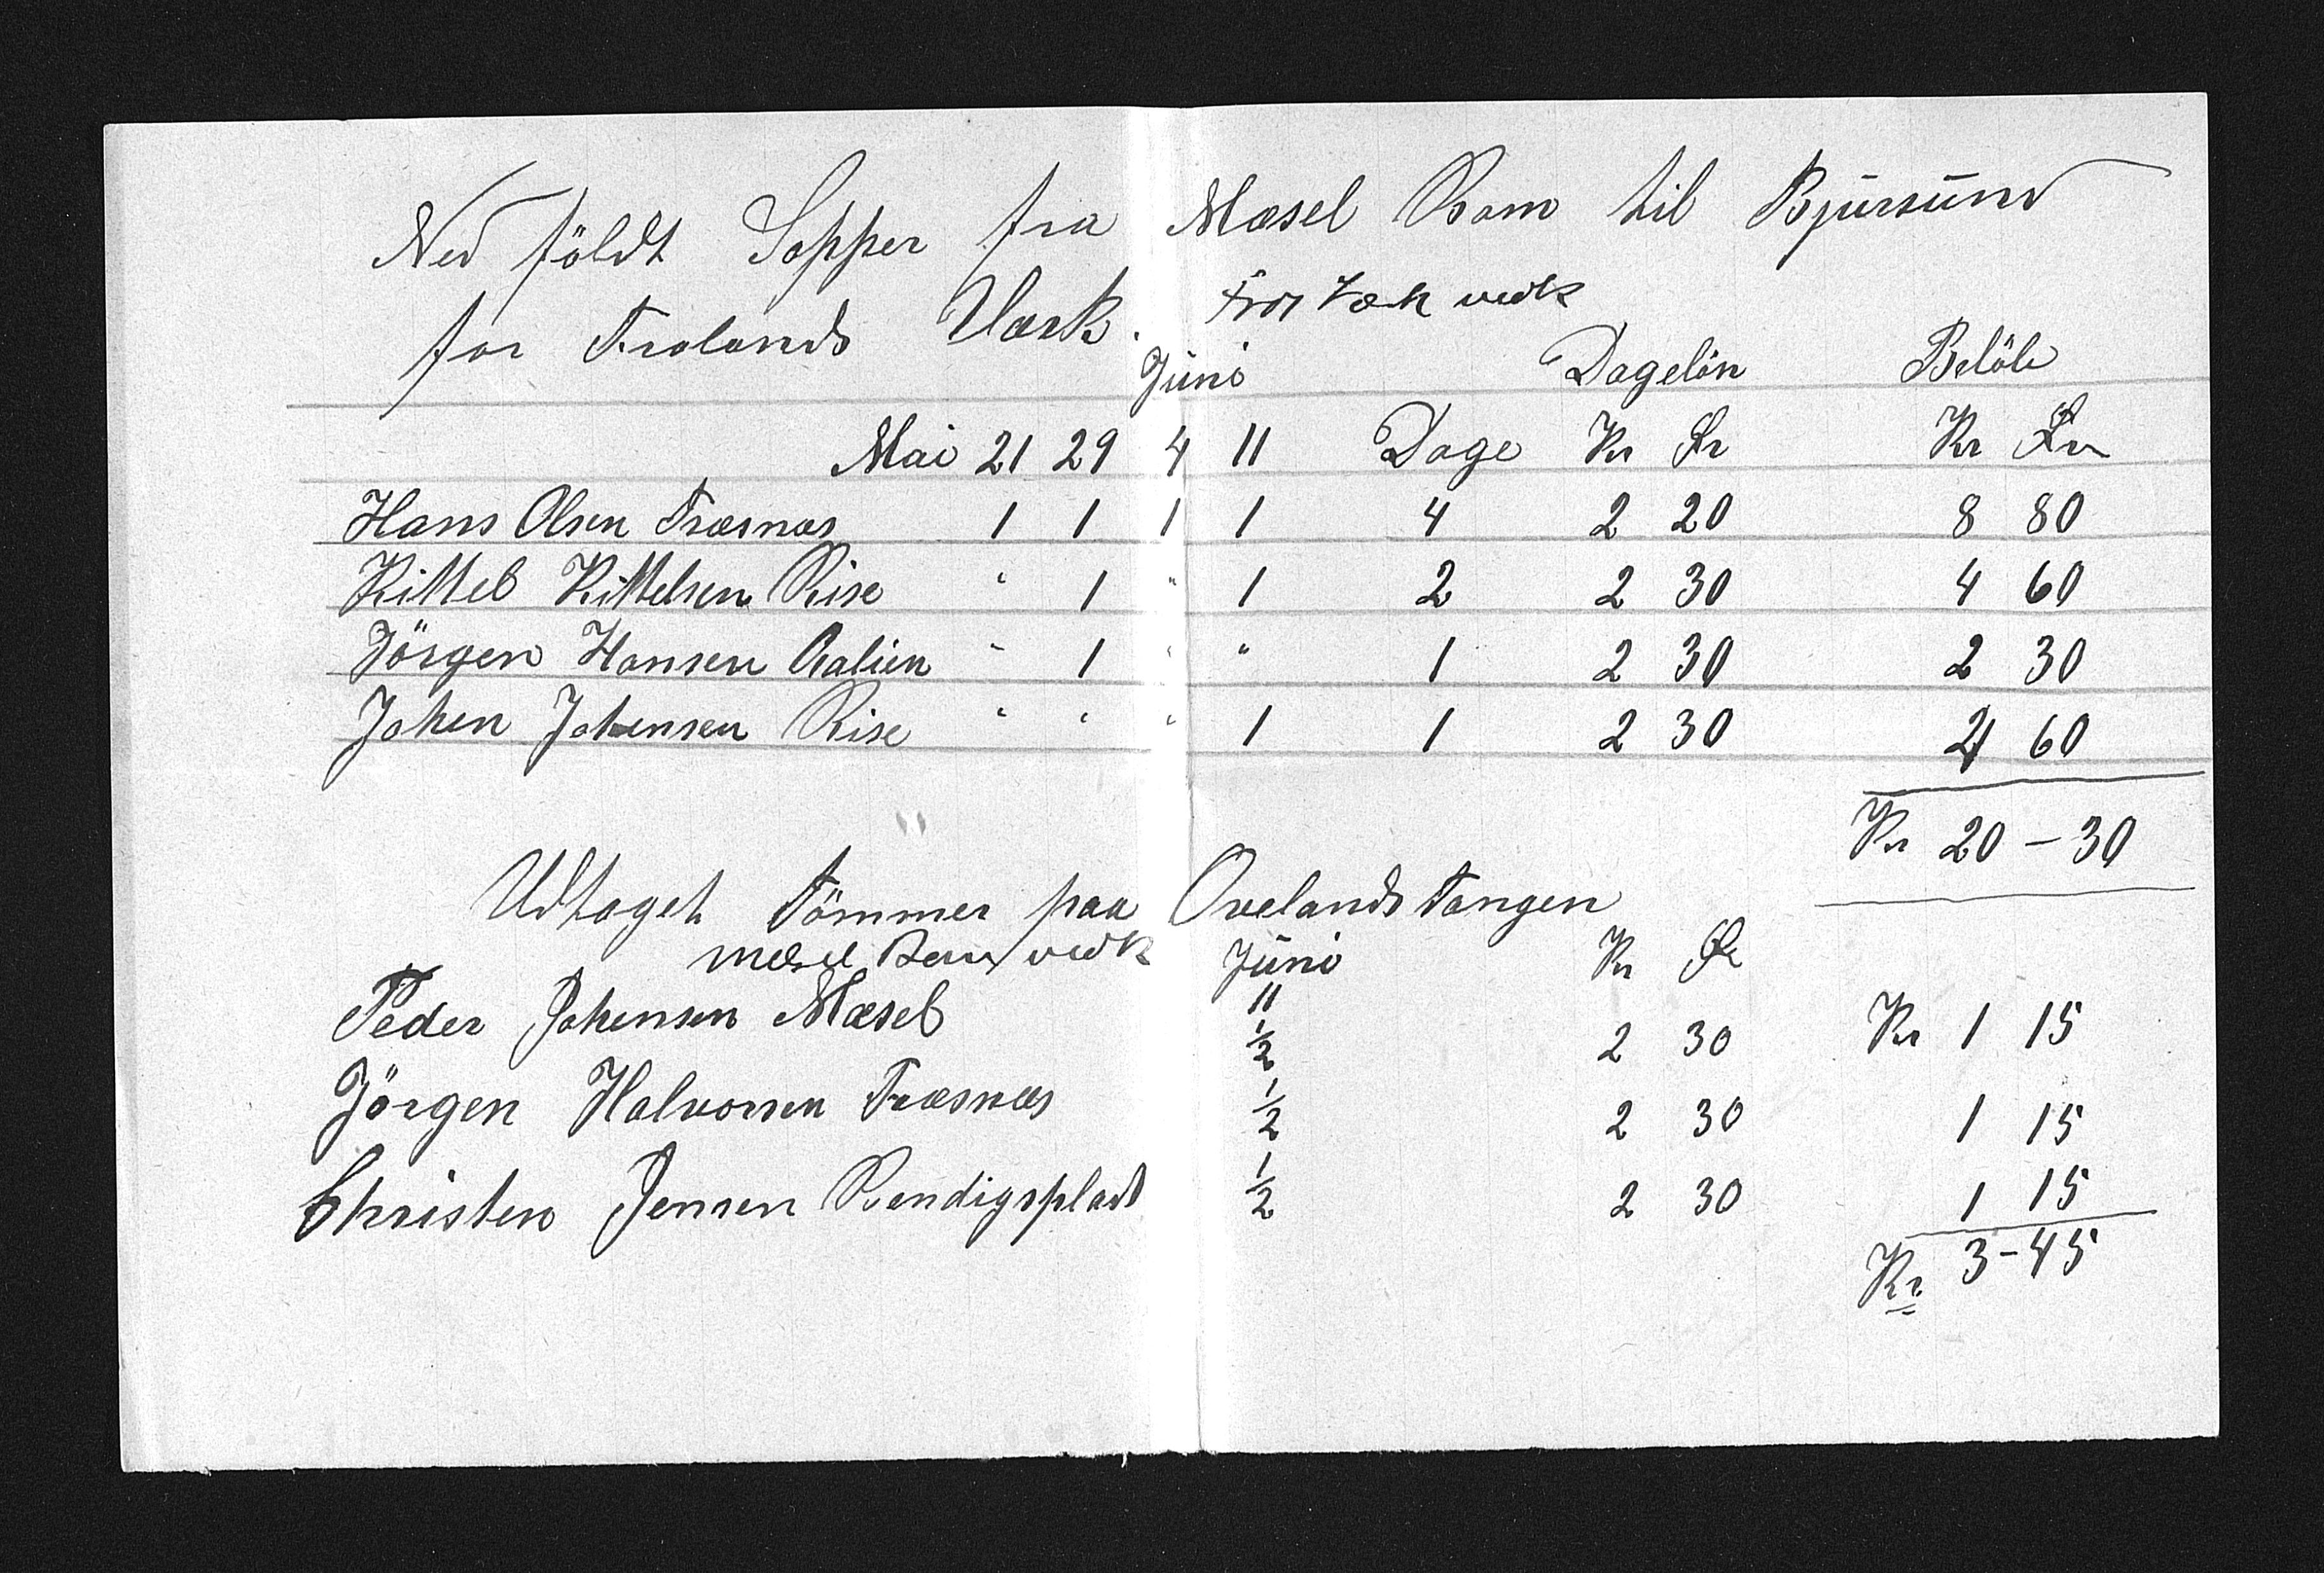 Ned földt Sopper fra Mæsel Bom til Bjürsünd
for Frolands Værk.
Jüni Dagelön Belöb
Mai 21 29 4 11 Dage Kr Ør Kr Ør
Hans Olsen Træsnæs 1 1 1 1 4 2 20 8 80
Kittel Kittelsen Rise " 1 " 1 2 2 30 4 60
Jörgen Hansen Aalien " 1 " " 1 2 30 2 30
Johen Johensen Rise " " " 1 1 2 30 4 60
Kr 20 - 30
Udtaget Tömmer paa Ovelands Tangen
Mæsel Bom vedk Jüni Kr Ør
11
Peder Johensen Mæsel 1/2 2 30 Kr 1 15
Jörgen Halvorsen Træsnæs 1/2 2 30 1 15
Christen Jensen Bendigsplads 1/2 2 30 1 15
Kr 3-45